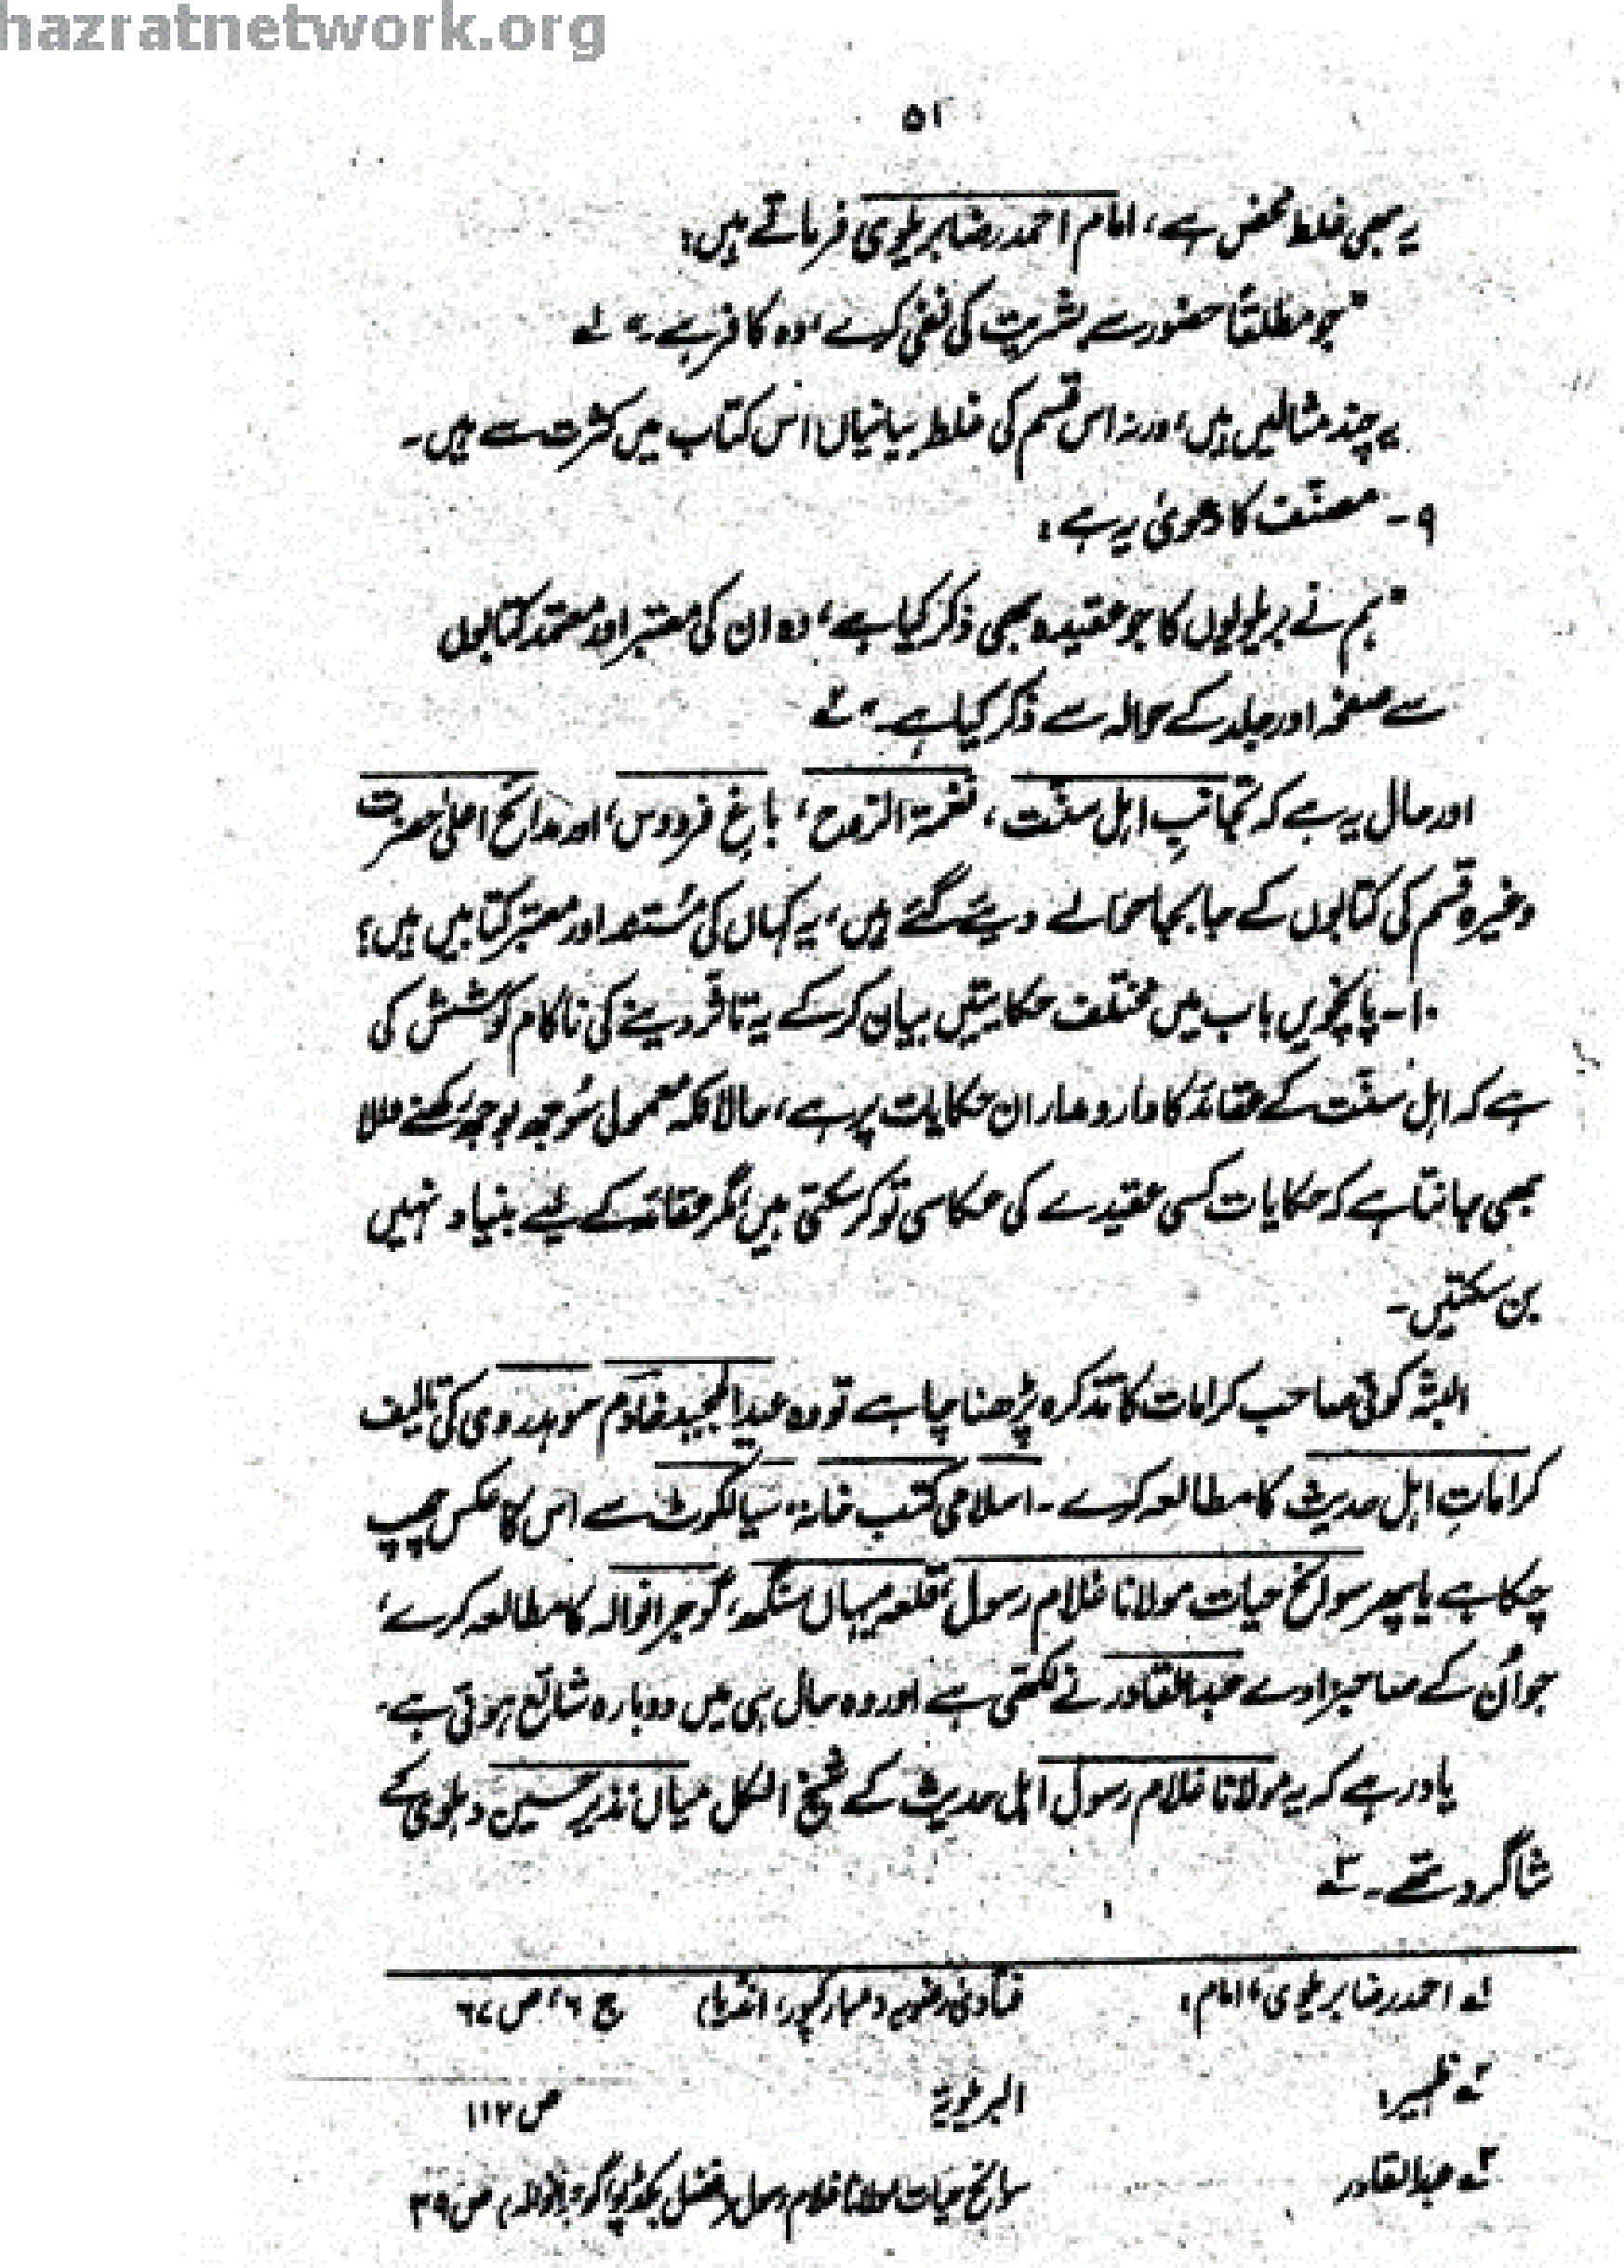 hazratnetwork.org
۵۱
یہ بھی غلط محض ہے، امام احمد رضا بریلوی فرماتے ہیں:
"جو مطلقاً حضور سے بشریت کی نفی کرے، وہ کافر ہے۔" لے
یہ چند مثالیں ہیں، ورنہ اس قسم کی غلط بیانیاں اس کتاب میں کثرت سے ہیں۔
۹- مصنف کا دعویٰ یہ ہے:
"ہم نے بریلویوں کا جو عقیدہ بھی ذکر کیا ہے، وہ ان کی معتبر اور معتمد کتابوں
سے صفحہ اور جلد کے حوالہ سے ذکر کیا ہے۔" ۲ے
اور حال یہ ہے کہ تجانبِ اہل سنّت، نغمۃ الروح، باغِ فردوس، اور مدائح اعلیٰ حضرت
وغیرہ قسم کی کتابوں کے جابجا حوالے دیئے گئے ہیں، یہ کہاں کی مُستند اور معتبر کتابیں ہیں؟
۱۰- پانچویں باب میں مختلف حکایتیں بیان کرکے یہ تاثر دینے کی ناکام کوشش کی
ہے کہ اہل سنّت کے عقائد کا دارومدار ان حکایات پر ہے، حالانکہ معمولی سُوجھ بوجھ رکھنے والا
بھی جانتا ہے کہ حکایات کسی عقیدے کی عکاسی تو کر سکتی ہیں مگر عقائد کے لیے بنیاد نہیں
بن سکتیں۔
البتہ کوئی صاحب کرامات کا تذکرہ پڑھنا چاہے تو وہ عبدالمجید خادم سوہدروی کی تالیف
کراماتِ اہل حدیث کا مطالعہ کرے۔ اسلامی کتب خانہ، سیالکوٹ سے اس کا عکس چھپ
چکا ہے یا پھر سوانح حیات مولانا غلام رسول، قلعہ میہاں سنگھ، گوجرانوالہ کا مطالعہ کرے،
جو اُن کے صاحبزادے عبدالقادر نے لکھی ہے اور وہ حال ہی میں دوبارہ شائع ہوئی ہے۔
یاد رہے کہ یہ مولانا غلام رسول اہل حدیث کے شیخ الکل میاں نذیر حسین دہلوی کے
شاگرد تھے۔ ۳ے
لے احمد رضا بریلوی، امام: فتاویٰ رضویہ (مبارکپور، انڈیا) ج ۶، ص ۶۷
۲ے ظہیر: البریلویۃ ص ۱۱۲
۳ے عبدالقادر سوانح حیات مولانا غلام رسول (فضل بکڈپو، گوجرانوالہ) ص ۳۹